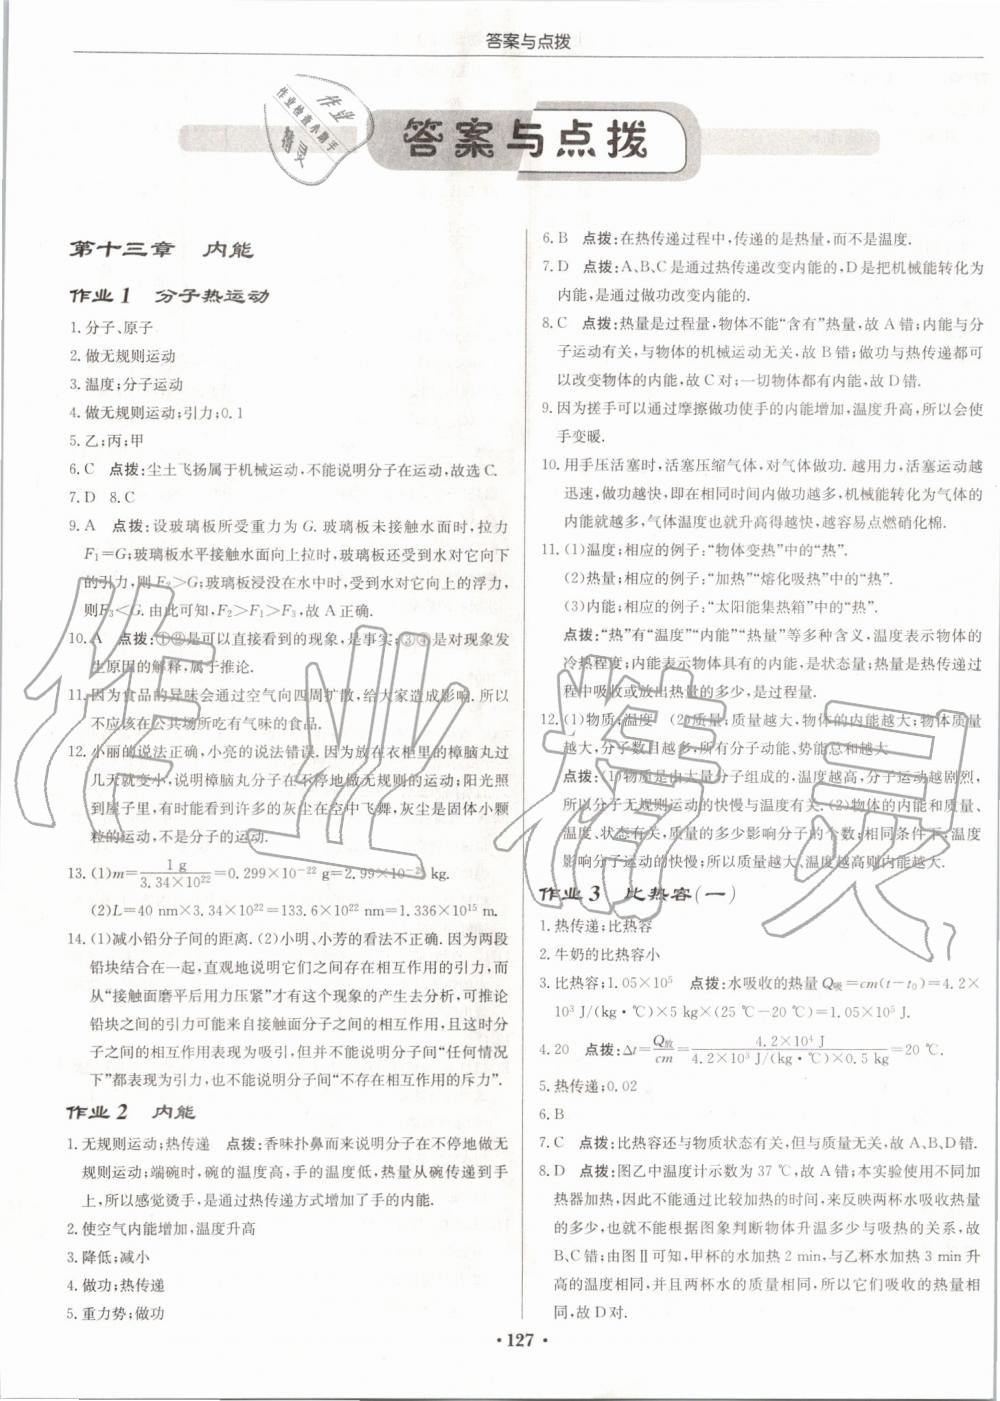 答案与点拨
作业
作业检查小助手
精灵
答案与点拨
第十三章 内能
作业1 分子热运动
1. 分子、原子
2. 做无规则运动
3. 温度;分子运动
4. 做无规则运动;引力;0.1
5. 乙;丙;甲
6. C 点拨:尘土飞扬属于机械运动,不能说明分子在运动,故选C.
7. D 8. C
9. A 点拨:设玻璃板所受重力为G. 玻璃板未接触水面时,拉力
F₁=G;玻璃板水平接触水面向上拉时,玻璃板还受到水对它向下
的引力,则F₂>G;玻璃板浸没在水中时,受到水对它向上的浮力,
则F₃<G. 由此可知,F₂>F₁>F₃,故A正确.
10. A 点拨:①②是可以直接看到的现象,是事实;③④是对现象发
生原因的解释,属于推论.
11. 因为食品的异味会通过空气向四周扩散,给大家造成影响. 所以
不应该在公共场所吃有气味的食品.
12. 小丽的说法正确,小亮的说法错误. 因为放在衣柜里的樟脑丸过
几天就变小,说明樟脑丸分子在不停地做无规则的运动;阳光照
到屋子里,有时能看到许多的灰尘在空中飞舞,灰尘是固体小颗
粒的运动,不是分子的运动.
13. (1)m=1 g/3.34×10²²=0.299×10⁻²² g=2.99×10⁻²⁶ kg.
(2)L=40 nm×3.34×10²²=133.6×10²² nm=1.336×10¹⁵ m.
14. (1)减小铅分子间的距离. (2)小明、小芳的看法不正确. 因为两段
铅块结合在一起,直观地说明它们之间存在相互作用的引力,而
从“接触面磨平后用力压紧”才有这个现象的产生去分析,可推论
铅块之间的引力可能来自接触面分子之间的相互作用,且这时分
子之间的相互作用表现为吸引,但并不能说明分子间“任何情况
下”都表现为引力,也不能说明分子间“不存在相互作用的斥力”.
作业2 内能
1. 无规则运动;热传递 点拨:香味扑鼻而来说明分子在不停地做无
规则运动;端碗时,碗的温度高,手的温度低,热量从碗传递到手
上,所以感觉烫手,是通过热传递方式增加了手的内能.
2. 使空气内能增加,温度升高
3. 降低;减小
4. 做功;热传递
5. 重力势;做功
6. B 点拨:在热传递过程中,传递的是热量,而不是温度.
7. D 点拨:A、B、C是通过热传递改变内能的,D是把机械能转化为
内能,是通过做功改变内能的.
8. C 点拨:热量是过程量,物体不能“含有”热量,故A错;内能与分
子运动有关,与物体的机械运动无关,故B错;做功与热传递都可
以改变物体的内能,故C对;一切物体都有内能,故D错.
9. 因为搓手可以通过摩擦做功使手的内能增加,温度升高,所以会使
手变暖.
10. 用手压活塞时,活塞压缩气体,对气体做功. 越用力,活塞运动越
迅速,做功越快,即在相同时间内做功越多,机械能转化为气体的
内能就越多,气体温度也就升高得越快,越容易点燃硝化棉.
11. (1)温度;相应的例子:“物体变热”中的“热”.
(2)热量;相应的例子:“加热”“熔化吸热”中的“热”.
(3)内能;相应的例子:“太阳能集热箱”中的“热”.
点拨:“热”有“温度”“内能”“热量”等多种含义,温度表示物体的
冷热程度;内能表示物体具有的内能,是状态量;热量是热传递过
程中吸收或放出热量的多少,是过程量.
12. (1)物质;温度 (2)质量;质量越大,物体的内能越大;物体质量
越大,分子数目越多,所有分子动能、势能总和越大
点拨:(1)物质是由大量分子组成的,温度越高,分子运动越剧烈,
所以分子无规则运动的快慢与温度有关. (2)物体的内能和质量、
温度、状态有关,质量的多少影响分子的个数;相同条件下,温度
影响分子运动的快慢;所以质量越大、温度越高则内能越大.
作业3 比热容(一)
1. 热传递;比热容
2. 牛奶的比热容小
3. 比热容;1.05×10⁵ 点拨:水吸收的热量Q吸=cm(t−t₀)=4.2×
10³ J/(kg·℃)×5 kg×(25 ℃−20 ℃)=1.05×10⁵ J.
4. 20 点拨:Δt=Q放/cm=4.2×10⁴ J/4.2×10³ J/(kg·℃)×0.5 kg=20 ℃.
5. 热传递;0.02
6. B
7. C 点拨:比热容还与物质状态有关,但与质量无关,故A、B、D错.
8. D 点拨:图乙中温度计示数为37 ℃,故A错;本实验使用不同加
热器加热,因此不能通过比较加热的时间,来反映两杯水吸收热量
的多少,也就不能根据图象判断物体升温多少与吸热的关系,故
B、C错;由图Ⅱ可知,甲杯的水加热2 min,与乙杯水加热3 min升
高的温度相同,并且两杯水的质量相同,所以它们吸收的热量相
同,故D对.
作业精灵
·127·